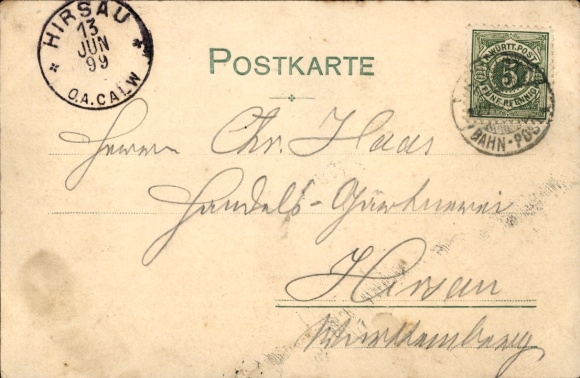 HIRSAU
13
JUN
99
O.A. CALW
POSTKARTE
K. WÜRTT. POST
5
FÜNF PFENNIG
BAHN-POST
Herrn Chr. Haas
Handels-Gärtnerei
Hirsau
Württemberg